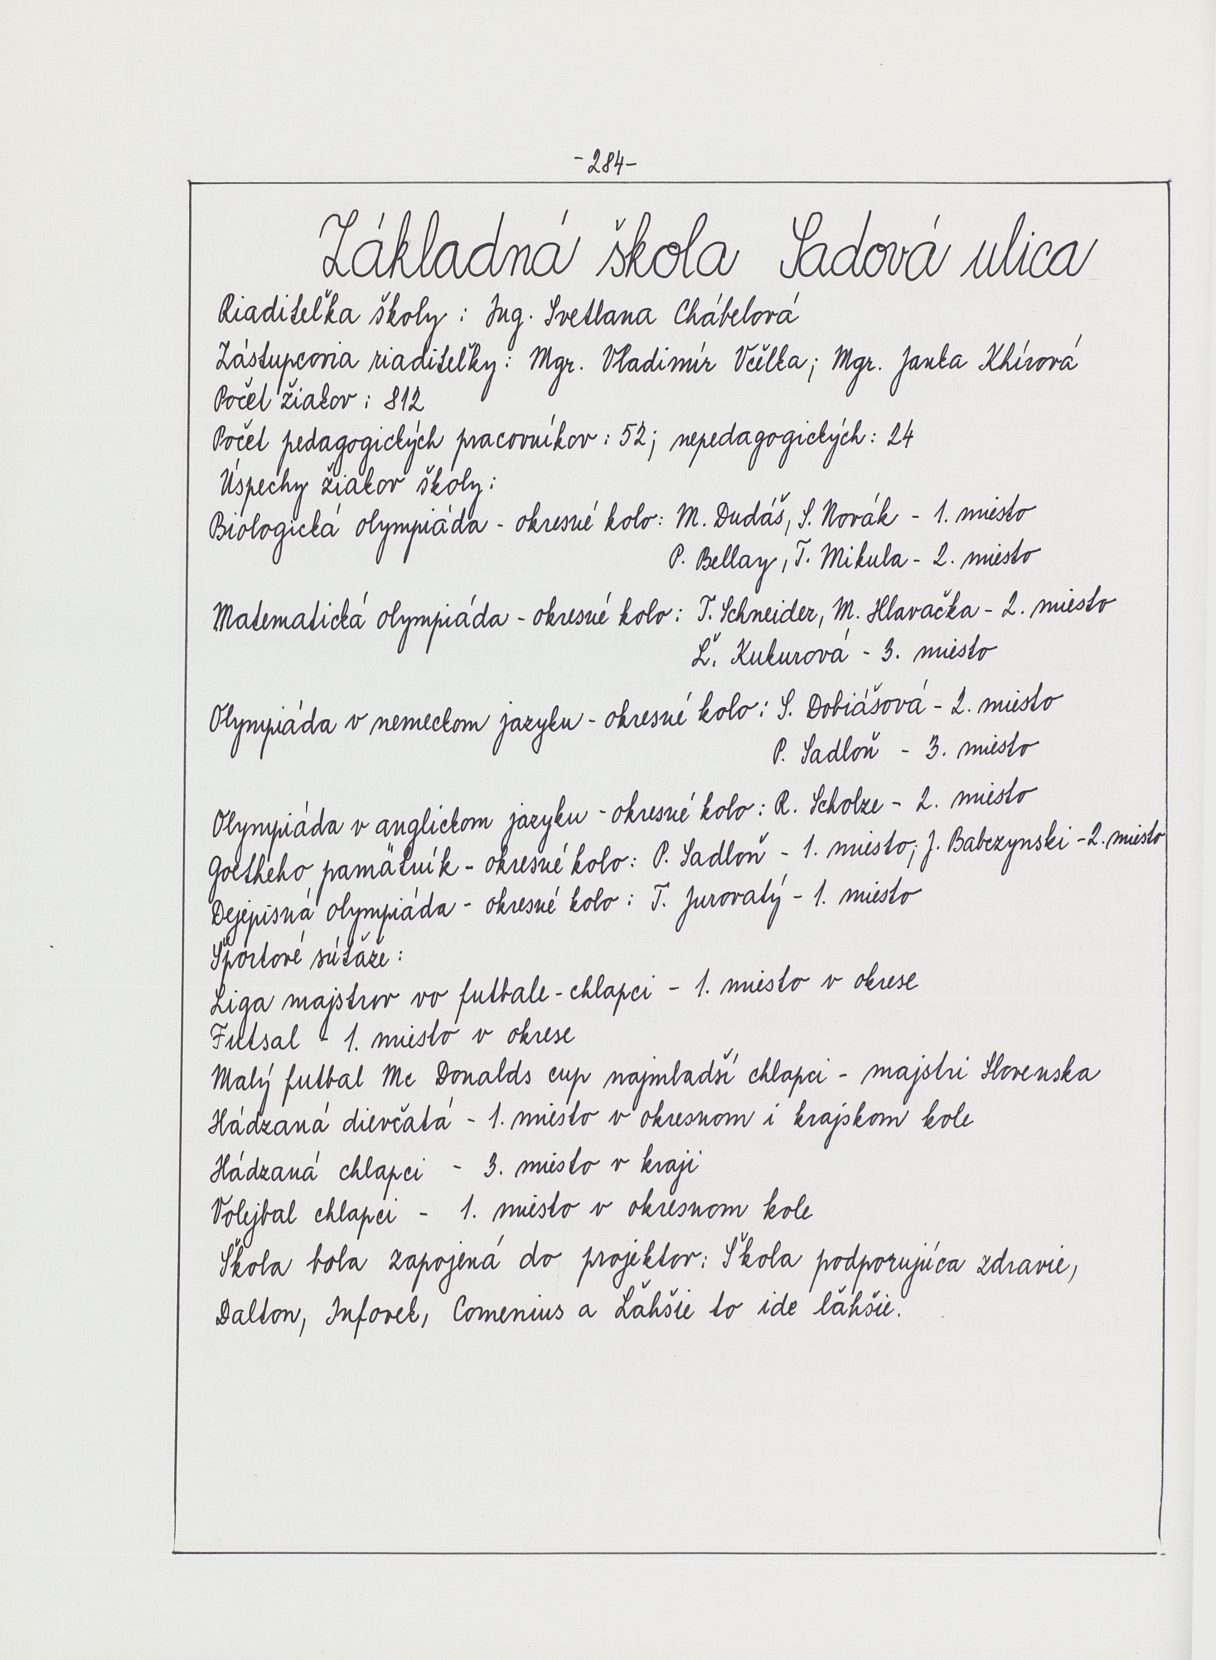 -284-
Základná škola Sadová ulica
Riaditeľka školy : Ing. Svetlana Chábelová
Zástupcovia riaditeľky : Mgr. Vladimír Včelka ; Mgr. Janka Khírová
Počet žiakov : 812
Počet pedagogických pracovníkov : 52 ; nepedagogických : 24
Úspechy žiakov školy :
Biologická olympiáda - okresné kolo : M. Dudáš, S. Novák - 1. miesto
P. Bellay, T. Mikula - 2. miesto
Matematická olympiáda - okresné kolo : T. Schneider, M. Hlavačka - 2. miesto
Ľ. Kukurová - 3. miesto
Olympiáda v nemeckom jazyku - okresné kolo : S. Dobiášová - 2. miesto
P. Sadloň - 3. miesto
Olympiáda v anglickom jazyku - okresné kolo : R. Scholze - 2. miesto
Goetheho pamätník - okresné kolo : P. Sadloň - 1. miesto ; J. Babczynski - 2. miesto
Dejepisná olympiáda - okresné kolo : T. Jurovatý - 1. miesto
Športové súťaže :
Liga majstrov vo futbale - chlapci - 1. miesto v okrese
Futsal - 1. miesto v okrese
Malý futbal Mc Donalds cup najmladší chlapci - majstri Slovenska
Hádzaná dievčatá - 1. miesto v okresnom i krajskom kole
Hádzaná chlapci - 3. miesto v kraji
Volejbal chlapci - 1. miesto v okresnom kole
Škola bola zapojená do projektov : Škola podporujúca zdravie,
Dalton, Infovek, Comenius a Ľahšie to ide ľahšie.